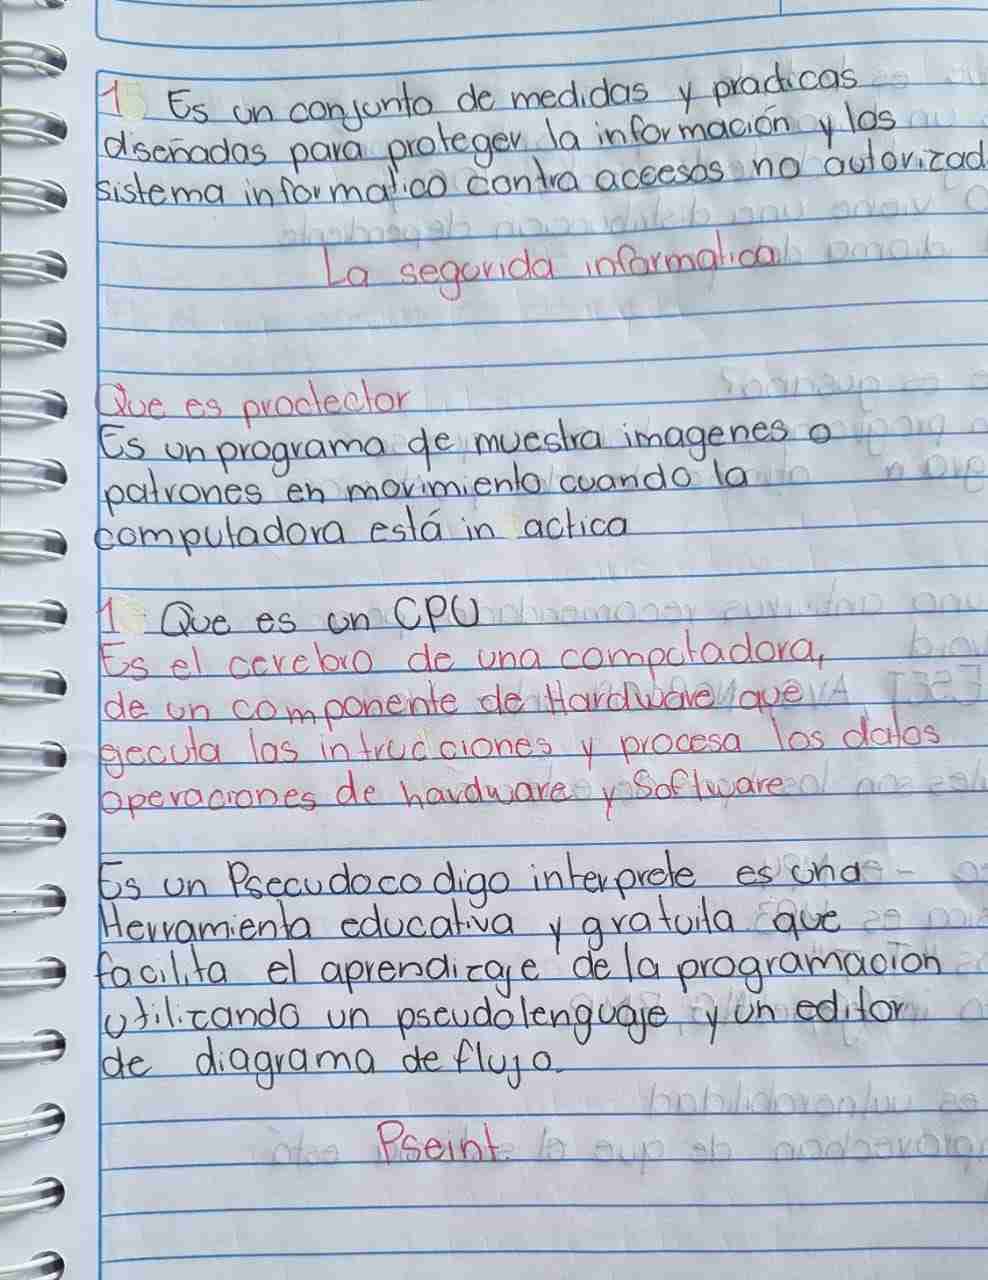 1 Es un conjunto de medidas y practicas
diseñadas para proteger la información y los
sistema informatico contra accesos no autorizad
La segurida informatica
Que es prodector
Es un programa qe muestra imagenes o
patrones en movimiento cuando la
computadora está in actica
1 Que es un CPU
Es el cerebro de una compotadora,
de un componente de Hardware que
gecuta las intrucciones y procesa los datos
operaciones de hardware y Software
Es un Psecudocodigo interprete es una
Herramienta educativa y gratuita que
facilita el aprendizaje de la programación
utilizando un pseudolenguaje y un editor
de diagrama de flujo.
Pseint